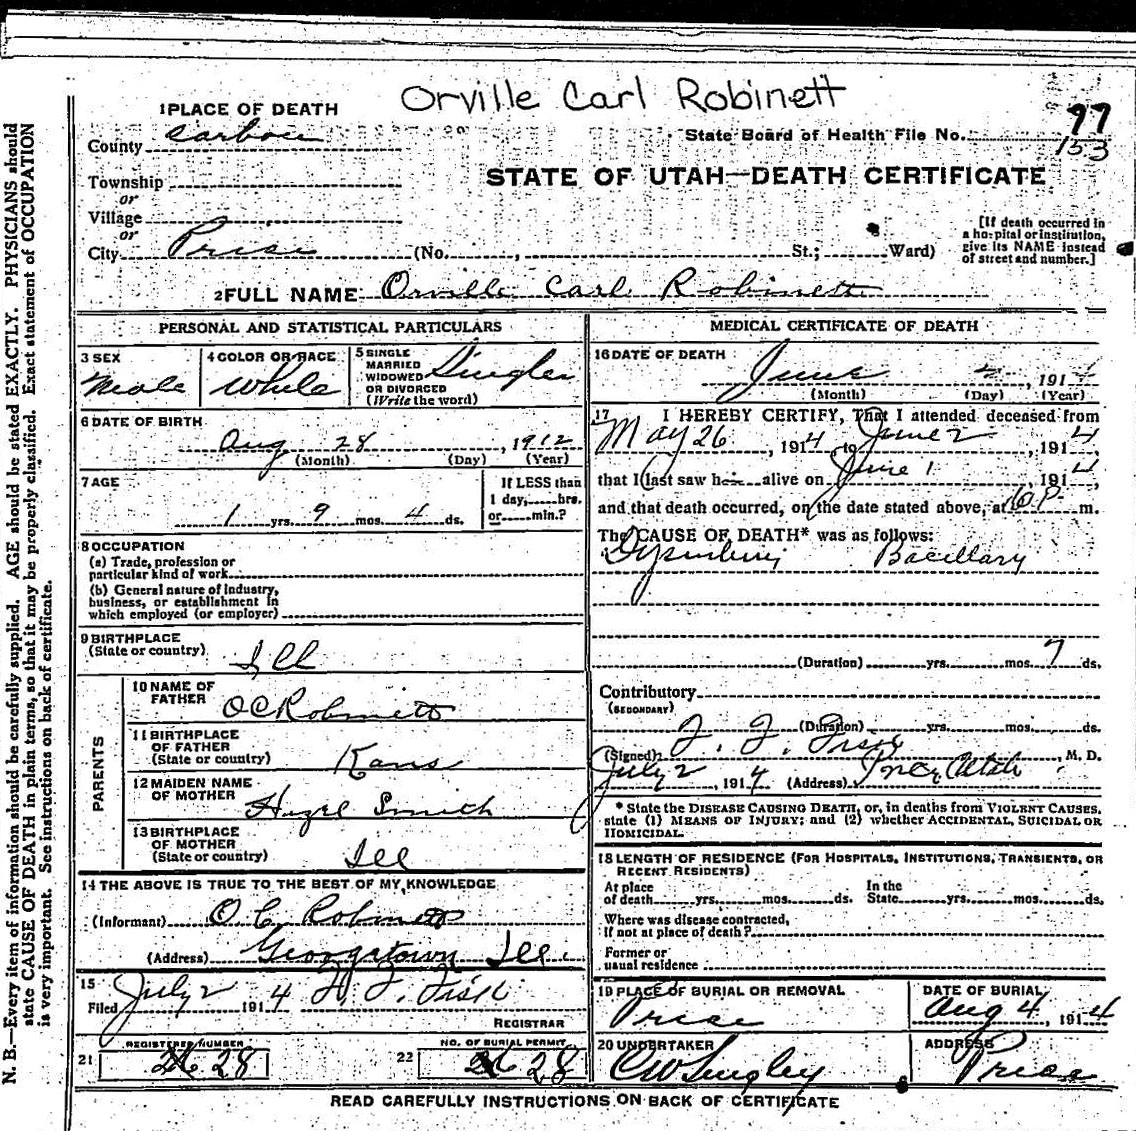 Orville Carl Robinett
1 PLACE OF DEATH
County Carbon
State Board of Health File No. 97
153
Township
or
Village
or
City Price (No. , St.; Ward)
STATE OF UTAH—DEATH CERTIFICATE
[If death occurred in
a hospital or institution,
give its NAME instead
of street and number.]
2 FULL NAME Orville Carl Robinett
PERSONAL AND STATISTICAL PARTICULARS
3 SEX
Male
4 COLOR OR RACE
White
5 SINGLE
MARRIED
WIDOWED
OR DIVORCED
(Write the word)
Single
6 DATE OF BIRTH
Aug 28, 1912
(Month) (Day) (Year)
7 AGE
1 yrs. 9 mos. 4 ds.
If LESS than
1 day, hrs.
or min.?
8 OCCUPATION
(a) Trade, profession or
particular kind of work
(b) General nature of industry,
business, or establishment in
which employed (or employer)
9 BIRTHPLACE
(State or country)
Ill
PARENTS
10 NAME OF
FATHER
O C Robinett
11 BIRTHPLACE
OF FATHER
(State or country)
Kans
12 MAIDEN NAME
OF MOTHER
Hazel Smith
13 BIRTHPLACE
OF MOTHER
(State or country)
Ill
14 THE ABOVE IS TRUE TO THE BEST OF MY KNOWLEDGE
(Informant) O. C. Robinett
(Address) Georgetown Ill.
15
Filed July 2 1914 F. F. Fisk
REGISTRAR
21 REGISTERED NUMBER
28
22 NO. OF BURIAL PERMIT
28
MEDICAL CERTIFICATE OF DEATH
16 DATE OF DEATH
June 2, 1914
(Month) (Day) (Year)
17 I HEREBY CERTIFY, That I attended deceased from
May 26, 1914, to June 2, 1914,
that I last saw h alive on June 1, 1914,
and that death occurred, on the date stated above, at 10 P m.
The CAUSE OF DEATH* was as follows:
Dysentery Bacillary
(Duration) yrs. mos. 7 ds.
Contributory
(SECONDARY)
(Duration) yrs. mos. ds.
(Signed) F. F. Fisk, M. D.
July 2, 1914 (Address) Price Utah
* State the DISEASE CAUSING DEATH, or, in deaths from VIOLENT CAUSES,
state (1) MEANS OF INJURY; and (2) whether ACCIDENTAL, SUICIDAL OR
HOMICIDAL.
18 LENGTH OF RESIDENCE (FOR HOSPITALS, INSTITUTIONS, TRANSIENTS, OR
RECENT RESIDENTS)
At place
of death yrs. mos. ds.
In the
State yrs. mos. ds.
Where was disease contracted,
If not at place of death?
Former or
usual residence
19 PLACE OF BURIAL OR REMOVAL
Price
DATE OF BURIAL
Aug 4, 1914
20 UNDERTAKER
ADDRESS
Price
READ CAREFULLY INSTRUCTIONS ON BACK OF CERTIFICATE
N. B.—Every item of information should be carefully supplied. AGE should be stated EXACTLY. PHYSICIANS should
state CAUSE OF DEATH in plain terms, so that it may be properly classified. Exact statement of OCCUPATION
is very important. See instructions on back of certificate.